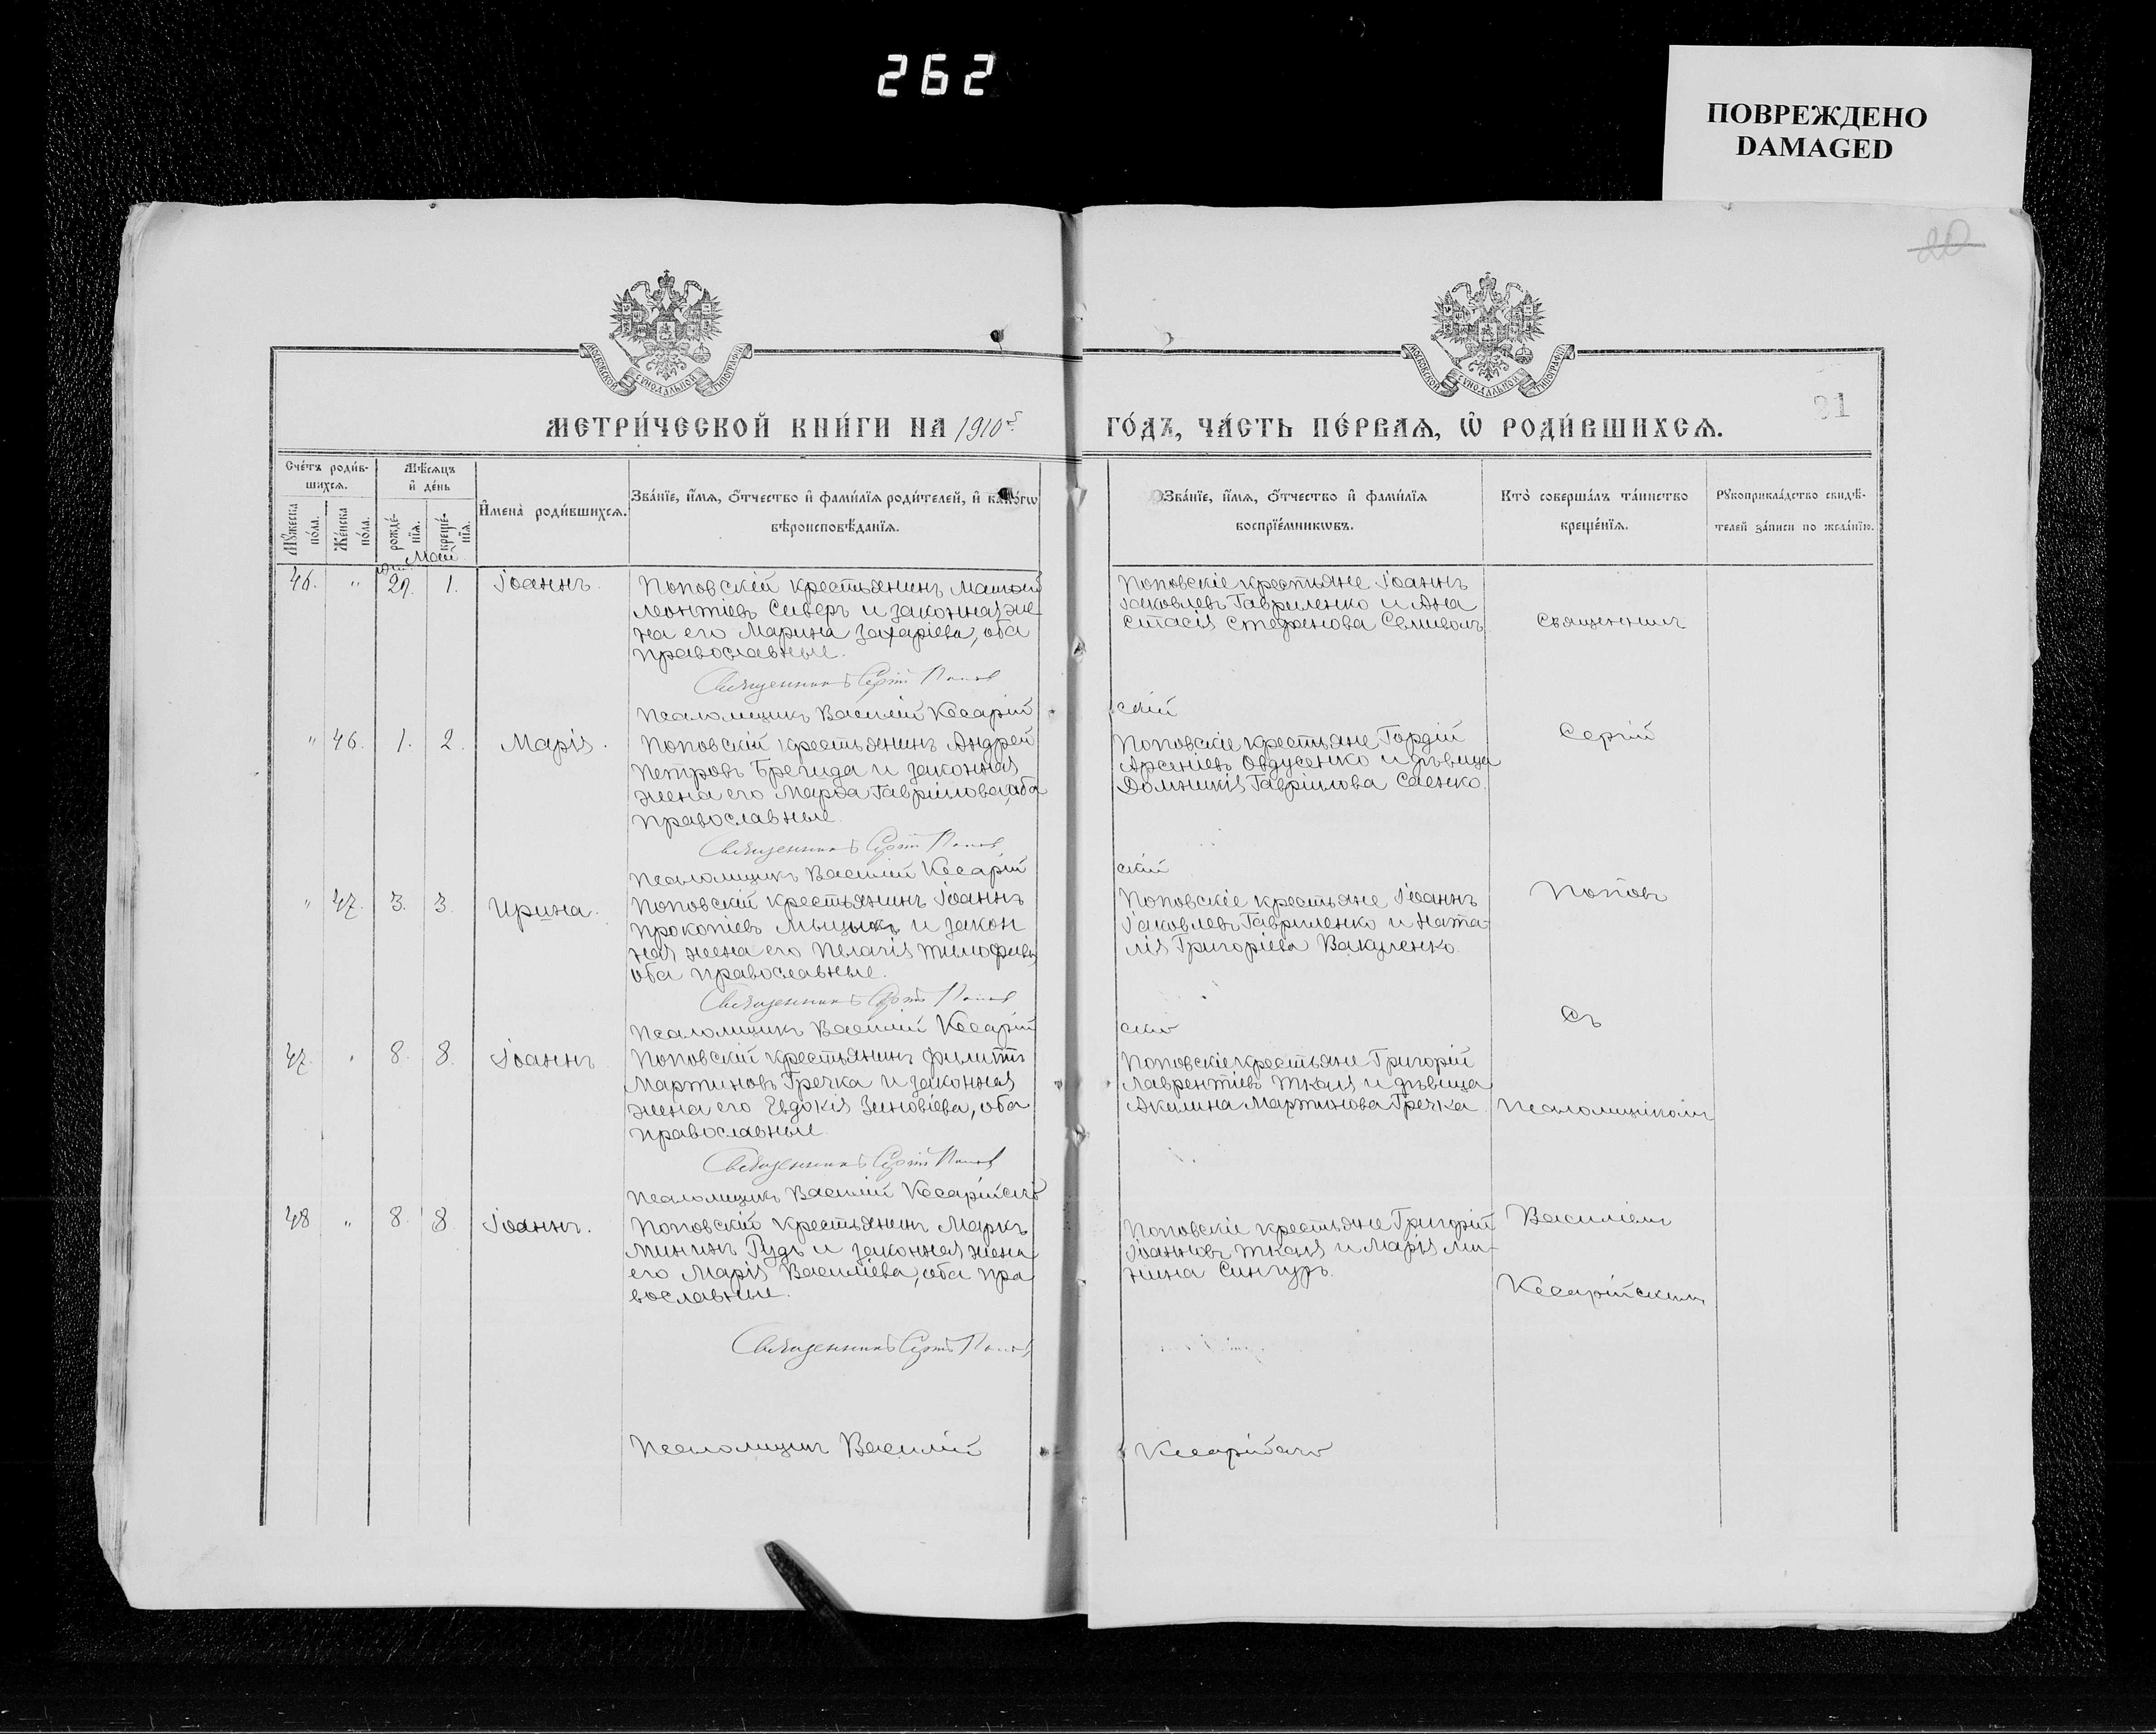 262
ПОВРЕЖДЕНО
DAMAGED
20
МОСКОВСКОЙ СѴНОДАЛЬНОЙ ТИПОГРАФІИ
МОСКОВСКОЙ СѴНОДАЛЬНОЙ ТИПОГРАФІИ
21
МЕТРИ́ЧЕСКОЙ КНИ́ГИ НА 1910 г.
ГО́ДЪ, ЧА́СТЬ ПЕ́РВАѦ, Ѡ҆ РОДИ́ВШИХСѦ.
Сче́тъ роди́в-
шихсѧ.
Мѣ́сѧцъ
и҆ де́нь
Мꙋ́жеска по́ла.
Же́нска по́ла.
рожде́-нїѧ.
креще́-нїѧ.
И҆мена̀ роди́вшихсѧ.
Зва́нїе, и҆́мѧ, ѻ҆́тчество и҆ фами́лїѧ роди́телей, и҆ како́гѡ
вѣроисповѣ́данїѧ.
Зва́нїе, и҆́мѧ, ѻ҆́тчество и҆ фами́лїѧ
воспрїе́мникѡвъ.
Кто̀ соверша́лъ та́инство
креще́нїѧ.
Рꙋкоприкла́дство свидѣ́-
телей за́писи по жела́нїю.
Май
46. " 29. 1. Іоаннъ.
Поповскій крестьянинъ Матѳей
Леонтіевъ Сиверъ и законная же-
на его Марина Захаріева, оба
православные.
Священникъ Сергій Попов
Псаломщикъ Василій Кесарій
Поповскіе крестьяне Іоаннъ
Іаковлевъ Гавриленко и Ана
стасія Стефанова Селиволъ
скій
Священникъ
" 46. 1. 2. Марія.
Поповскій крестьянинъ Андрей
Петровъ Брегида и законная
жена его Марѳа Гавріилова, оба
православные.
Священникъ Сергій Попов
Псаломщикъ Василій Кесарій
Поповскіе крестьяне Гордій
Арсеніевъ Овдусенко и дѣвица
Домникія Гавріилова Саенко.
скій
Сергій
" 47. 3. 3. Ирина.
Поповскій крестьянинъ Іоаннъ
Прокопіевъ Мыцыкъ и закон
ная жена его Пелагія Тимофиева
оба православные.
Священникъ Сергій Попов
Псаломщикъ Василій Кесарій
Поповскіе крестьяне Іоаннъ
Іаковлевъ Гавриленко и Ната-
лія Григоріева Вакуленко.
скій
Поповъ
Съ
47. " 8. 8. Іоаннъ
Поповскій крестьянинъ Филиппъ
Мартиновъ Гречка и законная
жена его Евдокія Зиновіева, оба
православные.
Священникъ Сергій Попов
Псаломщикъ Василій Кесарійскій
Поповскіе крестьяне Григорій
Лаврентіевъ Ткаля и дѣвица
Акилина Мартинова Гречка.
Псаломщікомъ
48 " 8. 8. Іоаннъ.
Поповскій крестьянинъ Маркъ
Мининъ Рудь и законная жена
его Марія Василіева, оба пра
вославные.
Священникъ Сергій Попов
Псаломщикъ Василій
Поповскіе крестьяне Григорій
Іоанновъ Ткаля и Марія Ми-
нина Сингуръ.
Кесарійскій
Василіемъ
Кесарійскимъ